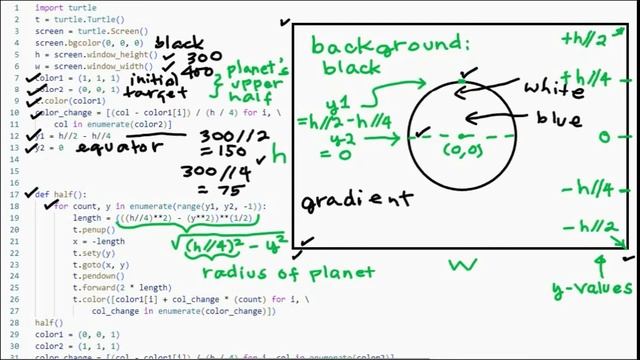 1 import turtle
2 t = turtle.Turtle()
3 screen = turtle.Screen()
4 screen.bgcolor(0, 0, 0) black
5 h = screen.window_height() 300
6 w = screen.window_width() 400
7 color1 = (1, 1, 1) initial
8 color2 = target
planet's upper half
9 t.color(color1)
10 color_change = [(col - color1[i]) / (h / 4) for i, \
11 col in enumerate(color2)]
12 y1 = h//2 - h//4
13 y2 = 0 equator
14
15
16
17 def half():
18 for count, y in enumerate(range(y1, y2, -1)):
19 length = (((h//4)**2) - (y**2))**(1/2)
20 t.penup()
21 x = -length
22 t.sety(y)
23 t.goto(x, y)
24 t.pendown()
25 t.forward(2 * length)
26 t.color([color1[i] + col_change * (count) for i, \
27 col_change in enumerate(color_change)])
28 half()
29 color1 = (0, 0, 1)
30 color2 = (1, 1, 1)
31 color_change = [(col - color1[i]) / (h / 4) for i, col in enumerate(color2)]
300//2
= 150
300//4
= 75
√(h//4)² - y²
radius of planet
h
background:
black
y1
= h//2 - h//4
y2
= 0
(0,0)
white
blue
gradient
+h//2
+h//4
0
-h//4
-h//2
w
y-values